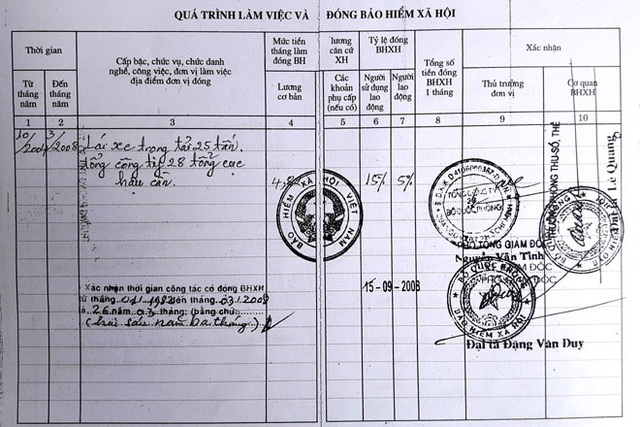 QUÁ TRÌNH LÀM VIỆC VÀ ĐÓNG BẢO HIỂM XÃ HỘI
Thời gian
Từ tháng năm
Đến tháng năm
Cấp bậc, chức vụ, chức danh
nghề, công việc, đơn vị làm việc
địa điểm đơn vị đóng
Mức tiền lương căn cứ
tháng làm XH
đóng BH
Lương cơ bản
Các khoản phụ cấp (nếu có)
Tỷ lệ đóng BHXH
Người sử dụng lao động
Người lao động
Tổng số
tiền đóng
BHXH
1 tháng
Xác nhận
Thủ trưởng đơn vị
Cơ quan BHXH
1 2 3 4 5 6 7 8 9 10
10/2004 3/2008 Lái xe trọng tải 25 tấn.
tổng công ty 28 tổng cục
hậu cần. 15% 5%
BẢO HIỂM XÃ HỘI VIỆT NAM
TỔNG CÔNG TY
28
BỘ QUỐC PHÒNG
PHÓ TỔNG GIÁM ĐỐC
Nguyễn Văn Tình
TRƯỞNG PHÒNG THU-SỔ, THẺ
Lê Quang
Xác nhận thời gian công tác có đóng BHXH
từ tháng 01.1982 đến tháng 03.2008
là 26 năm 03 tháng: (bằng chữ:
(hai sáu năm ba tháng)
15-09-2008
GIÁM ĐỐC
BỘ QUỐC PHÒNG
BẢO HIỂM XÃ HỘI
Đại tá Đặng Văn Duy